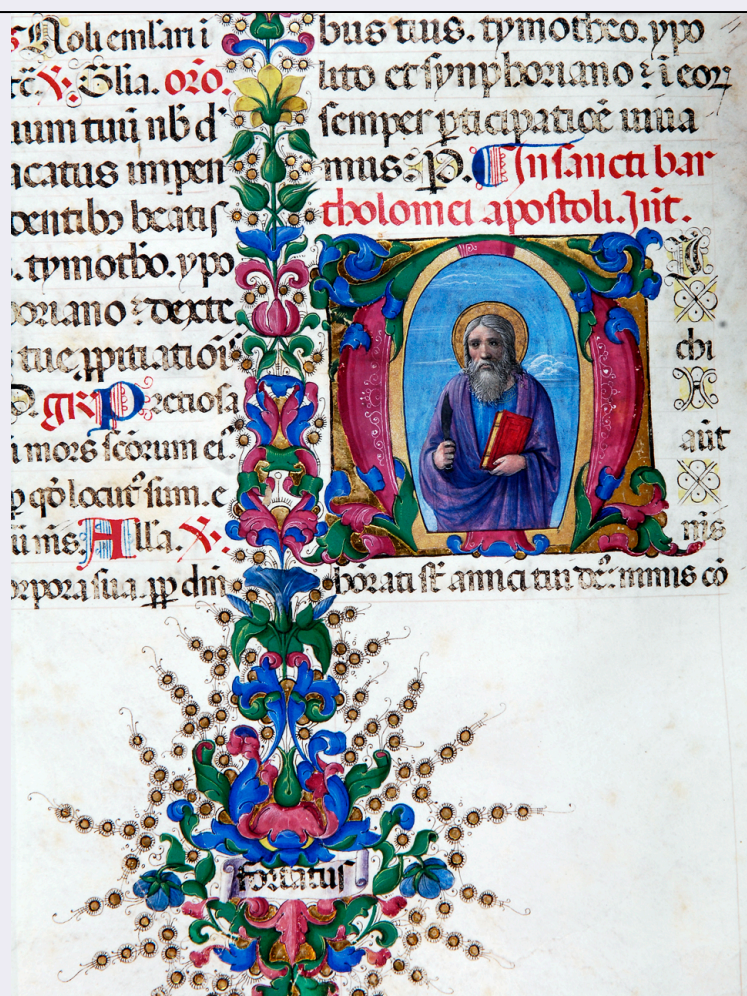 Noli emlari i
tc̄. V. Glia. oro.
uum tuū nb̄ d'
acatus impen
oentibꝫ beatis
. tymotho. ypo
oriano ⁊ dexte
tue ꝓpitiatiōi
gr̄ Pretiosa
i mors sc̄orum ei'.
qd̄ locut' sum. e
Alla. V.
orpora sua. ꝓp dn̄i
bus tuis. tymotheo. ypo
lito et synphoriano ⁊ i eoꝝ
semper ꝑticipatiōē uiua
mus. P. In sancti bar
tholomei apostoli. Int.
M
chi
aūt
nis
borati st̄ amici tui de'. nimis cō
fortatus